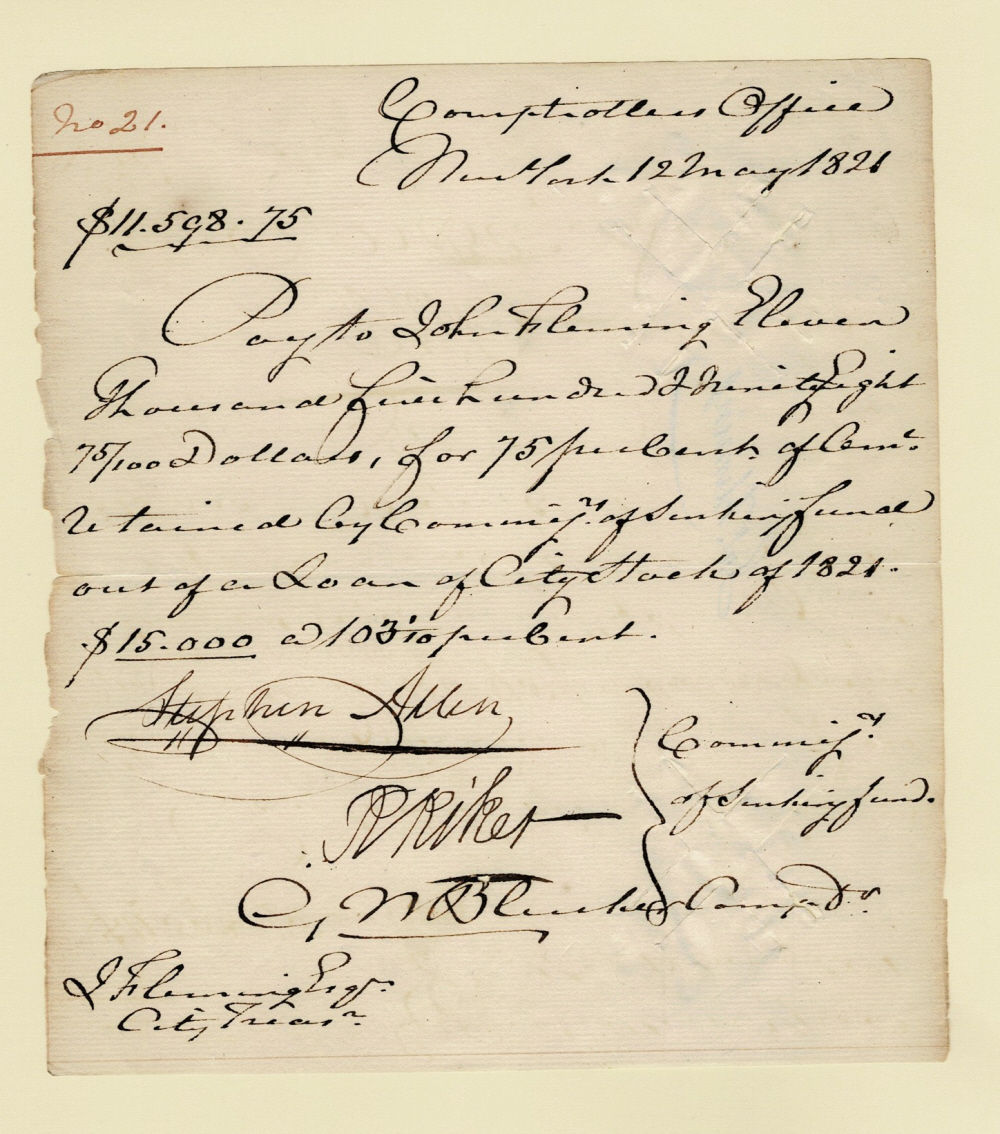 No 21.
Comptrollers Office
New York 12 May 1821
$11.598.75
Pay to John Fleming Eleven
Thousand five hundred & Ninety Eight
75/100 Dollars, for 75 per Cent. of Amt.
retained by Commissrs. of Sinking fund
out of a Loan of City Stock of 1821.
$15.000 @ 103 1/10 per Cent.
Stephen Allen
R Riker
G N Bleecker Comptr.
Commissrs.
of Sinking fund.
J Fleming Esqr.
City Treasr.